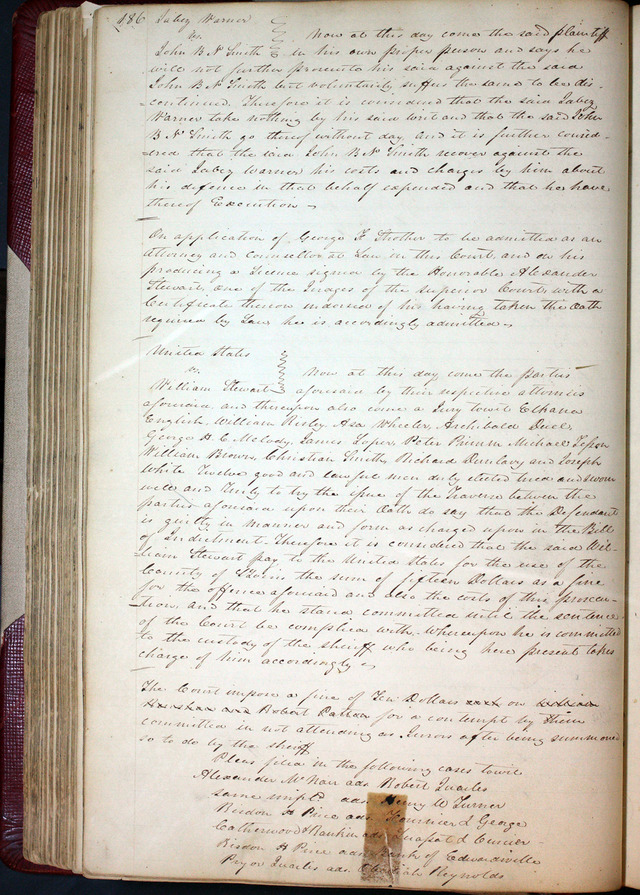 486 Jabez Warner
vs. Now at this day come the said plaintiff
John B. N. Smith in his own proper person and says he
will not further prosecute his said against the said
John B. N. Smith but voluntarily suffers the same to be dis-
continued. Therefore it is considered that the said Jabez
Warner take nothing by his said writ and that the said John
B. N. Smith go thereof without day, and it is further consid-
ered that the said John B. N. Smith recover against the
said Jabez Warner his costs and charges by him about
his defence in that behalf expended and that he have
thereof Execution
On application of George F. Strother to be admitted as an
Attorney and Counsellor at Law in this Court and on his
producing a License signed by the Honorable Alexander
Stewart, One of the Judges of the Superior Court, with a
Certificate thereon indorsed of his having taken the Oath
required by Law he is accordingly admitted
United States
vs. Now at this day come the Parties
William Stewart aforesaid by their respective attornies
aforesaid, and thereupon also come a Jury towit Elkana
English, William Risley, Asa Wheeler, Archibald Duel,
George H. C. Melody, James Loper, Peter Primm, Michael
William Brown, Christian Smith, Richard Dunlavy and Joseph
White Twelve good and lawful men duly elected tried and sworn
well and Truly to try the issue of the Traverse between the
parties aforesaid upon their Oath do say that the Defendant
is guilty in manner and form as charged upon in the Bill
of Indictment. Therefore it is considered that the said Wil-
liam Stewart pay to the United States for the use of the
County of St Louis the sum of fifteen Dollars as a fine
for the offence aforesaid and also the costs of this prosecu-
tion, and that he stand committed until the sentence
of the Court be complied with. Whereupon he is committed
to the custody of the sheriff who being here present takes
charge of him accordingly
The Court impose a fine of Ten Dollars on
Robert for a contempt by
committed in not attending as Jurors after being summoned
so to do by the sheriff
Pleas filed in the following cases towit
Alexander McNair ads. Robert Quarles
same impld. ads Henry W Turner
Risdon H Price ads. & George
Catherwood & Rankin ads. &
Risdon H Price ads. Bank of Edwardsville
Pryor Quarles ads. Reynolds